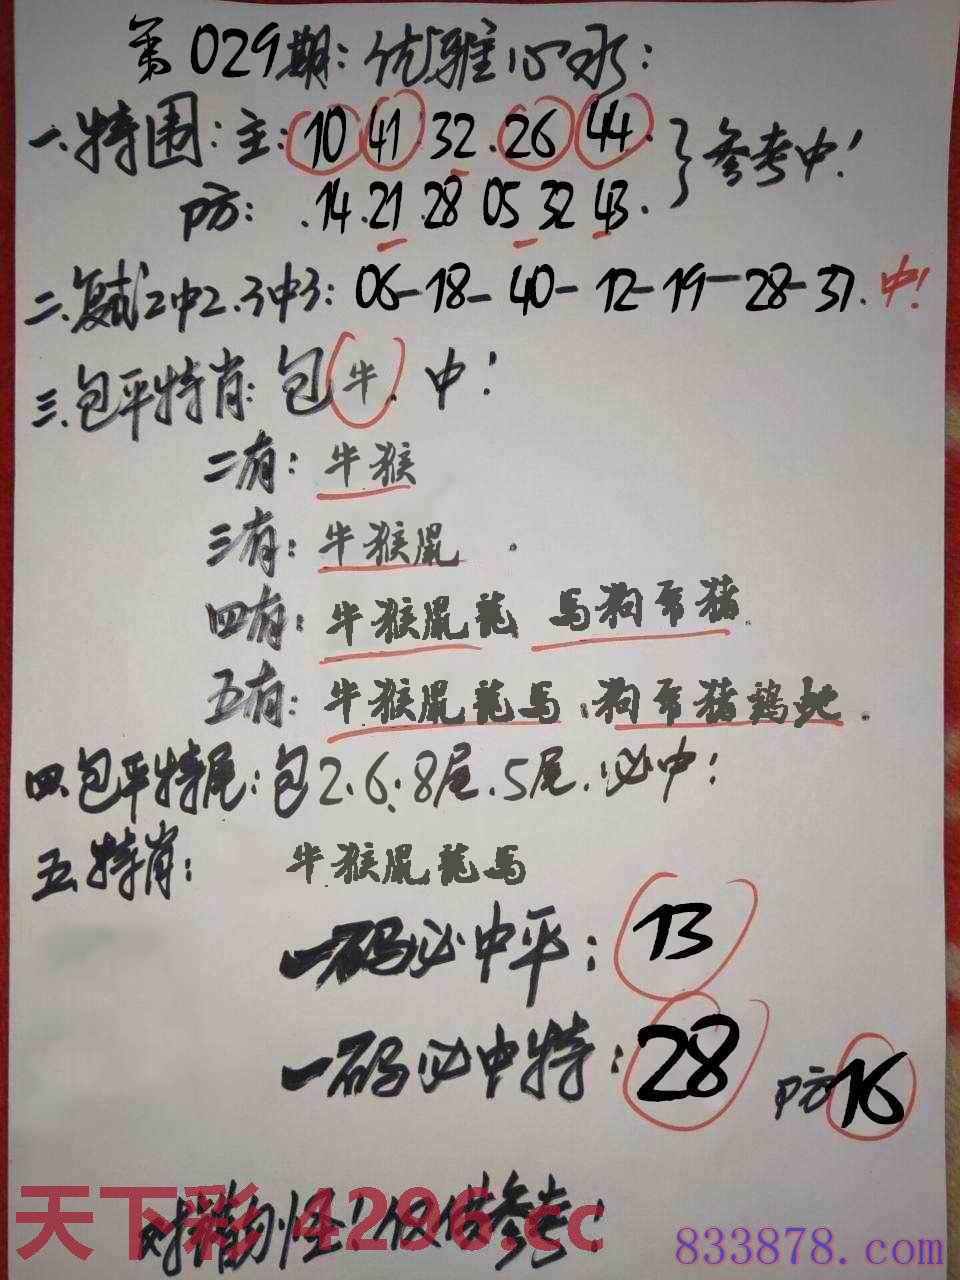 第029期：优雅心水：
一.特围：主：10 41.32.26 44.
防：.14.21.28 05 32 43.
}参考中！
二.复试2中2.3中3：06-18-40-12-19-28-37.中！
三.包平特肖：包牛.中！
二有：牛猴
三有：牛猴鼠.
四有：牛猴鼠龍 馬狗 猪.
五有：牛猴鼠龍馬.狗 猪鷄蛇.
四.包平特尾：包2.6.8尾.5尾.必中！
五.特肖：牛猴鼠龍馬
一码必中平：13
一码必中特：28 防16
天下彩 4296.cc
错 怪！仅供参考！
833878.com